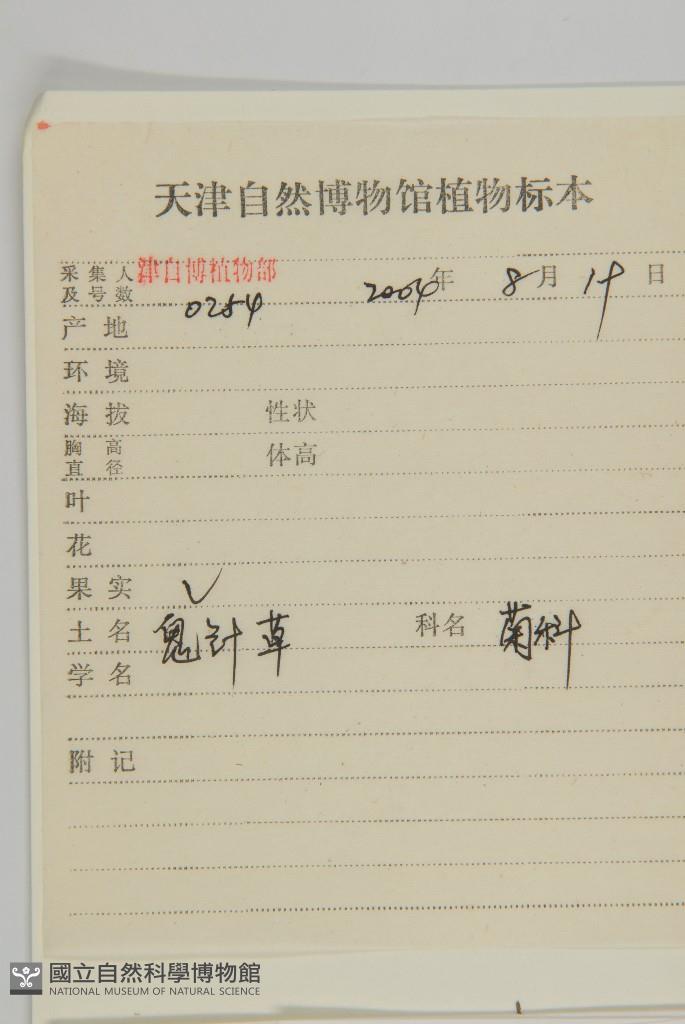 天津自然博物馆植物标本
采集人及号数 津自博植物部 0254 2004年 8月 19日
产地
环境
海拔 性状
胸高直径 体高
叶
花
果实 ✓
土名 鬼针草 科名 菊科
学名
附记
國立自然科學博物館
NATIONAL MUSEUM OF NATURAL SCIENCE